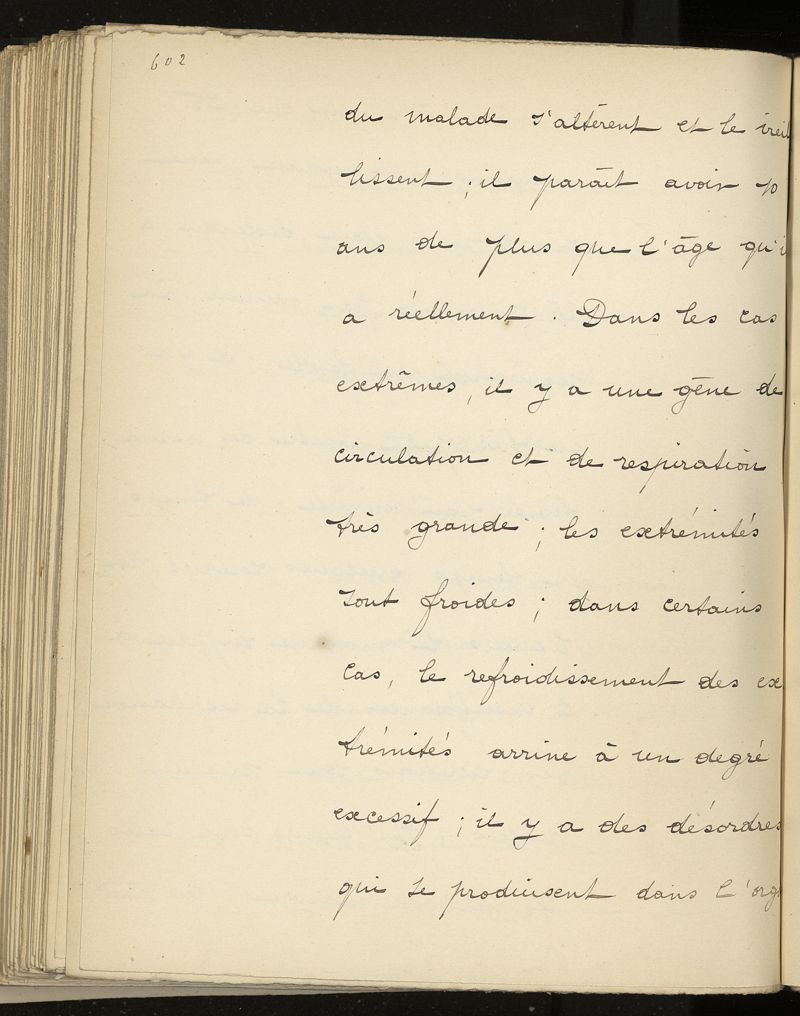 602
du malade s'altèrent et le vieil
lissent ; il paraît avoir 10
ans de plus que l'âge qu'i
a réellement . Dans les cas
extrêmes, il y a une gêne de
circulation et de respiration
très grande ; les extrémités
sont froides ; dans certains
cas, le refroidissement des ex
trémités arrive à un degré
excessif ; il y a des désordres
qui se produisent dans l'org